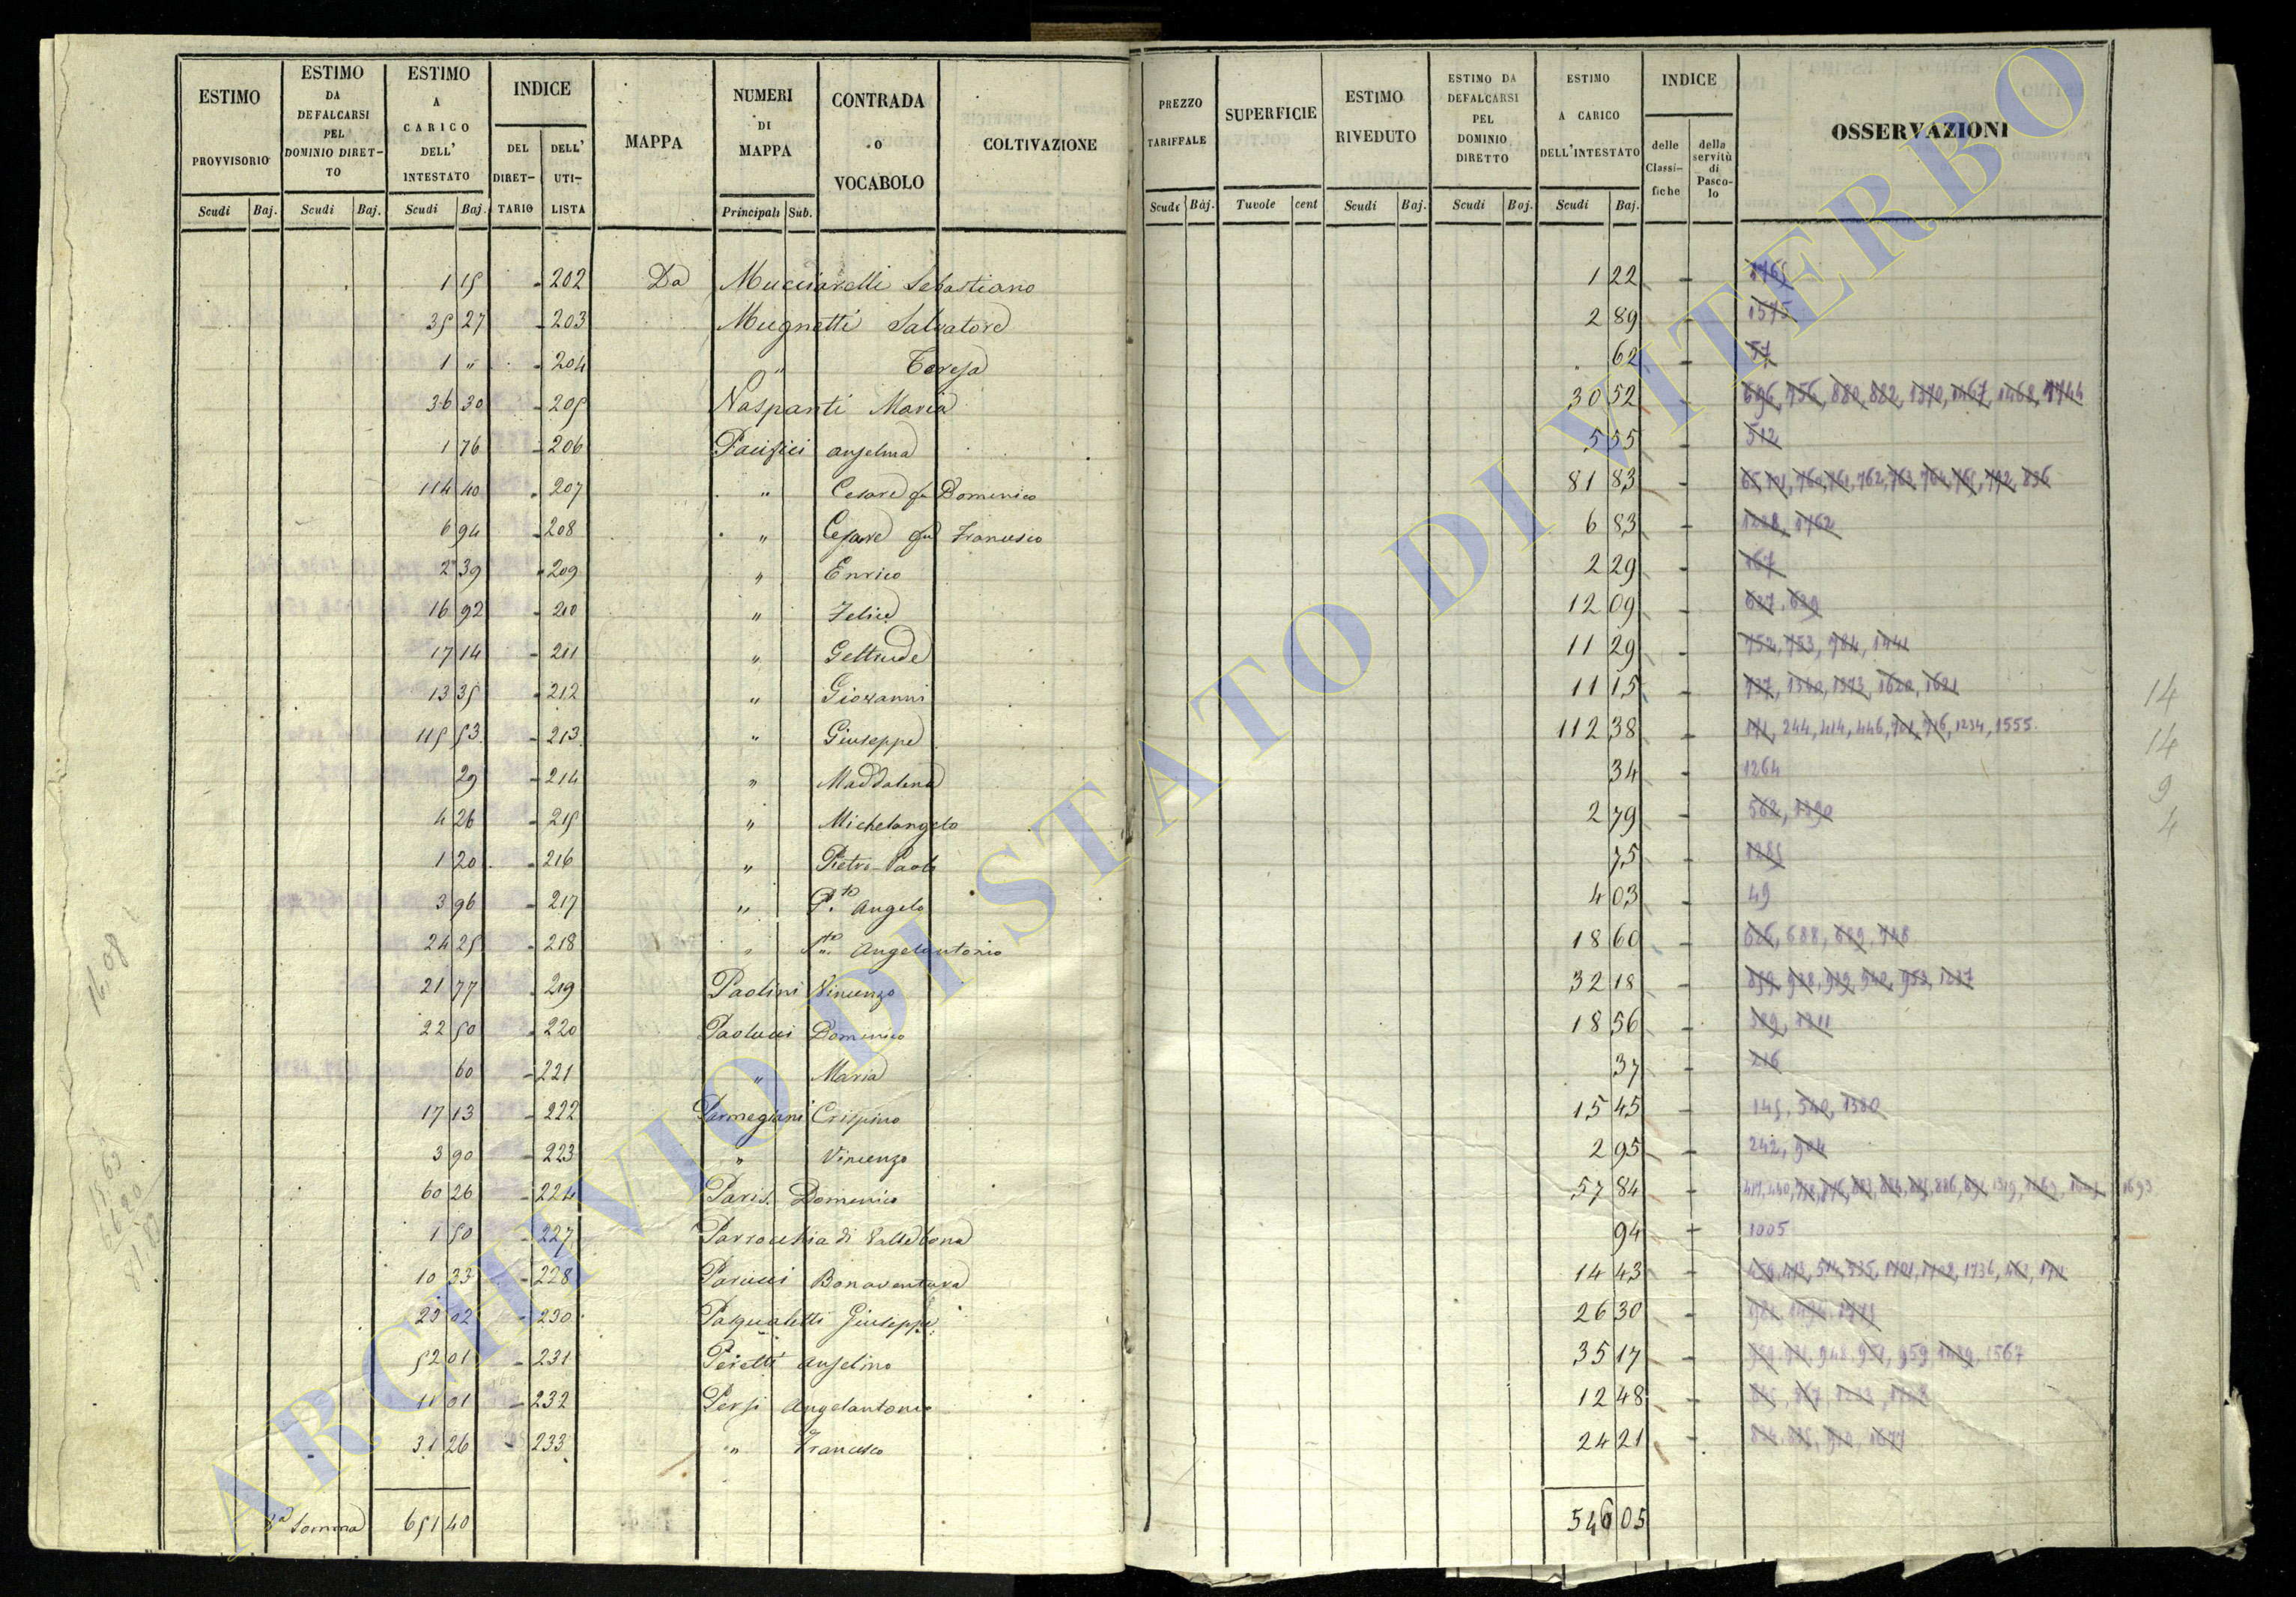 ESTIMO PROVVISORIO
ESTIMO DA DEFALCARSI PEL DOMINIO DIRET-TO
ESTIMO A CARICO DELL' INTESTATO
INDICE
DEL DIRET-TARIO
DELL' UTI-LISTA
MAPPA
NUMERI DI MAPPA
CONTRADA o VOCABOLO
COLTIVAZIONE
PREZZO TARIFFALE
SUPERFICIE
ESTIMO RIVEDUTO
ESTIMO DA DEFALCARSI PEL DOMINIO DIRETTO
ESTIMO A CARICO DELL'INTESTATO
INDICE
delle Classi-fiche
della servitù di Pasco-lo
OSSERVAZIONI
Scudi Baj. Scudi Baj. Scudi Baj. Principali Sub. Scudi Baj. Tuvole cent Scudi Baj. Scudi Baj. Scudi Baj.
1 15 - 202 Da Mucciarelli Sebastiano 1 22 - 1765
35 27 - 203 Mugnetti Salvatore 2 89 - 1575
1 " - 204 " Teresa 62 - 57
36 30 - 205 Naspanti Maria 30 52 - 696, 756, 880, 882, 1370, 1467, 1468, 1744
1 76 - 206 Pacifici Anselma 5 55 - 512
114 40 - 207 " Cesare qu Domenico 81 83 - 762, 763, 764, 765, 792, 836
6 94 - 208 " Cesare qu Francesco 6 83 - 1228, 1762
2 39 - 209 " Enrico 2 29 - 167
16 92 - 210 " Felice 12 09 - 627, 629
17 14 - 211 " Geltrude 11 29 - 752, 753, 784, 1441
13 35 - 212 " Giovanni 11 15 - 737, 1340, 1373, 1620, 1621
115 53 - 213 " Giuseppe 112 38 - 171, 244, 414, 446, 701, 716, 1234, 1555
29 - 214 " Maddalena 34 - 1264
4 26 - 215 " Michelangelo 2 79 - 562, 1390
1 20 - 216 " Pietro-Paolo 75 - 1285
3 96 - 217 " P.to Angelo 4 03 - 49
24 25 - 218 " Angelantonio 18 60 - 626, 688, 689, 748
21 77 - 219 Paolini Vincenzo 32 18 - 859, 938, 939, 940, 952, 1237
22 50 - 220 Paolucci Domenico 18 56 - 389, 1311
60 - 221 " Maria 37 - 216
17 13 - 222 Parmegiani Crispino 15 45 - 145, 540, 1380
3 90 - 223 " Vincenzo 2 95 - 242, 904
60 26 - 224 Paris. Domenico 57 84 - 1693
1 50 - 227 Parrocchia di Valledbona 94 - 1005
10 33 - 228 Parucci Bonaventura 14 43 - 514, 535, 1701, 1702, 1736
25 02 - 230 Pasqualetti Giuseppe 26 30 -
52 01 - 231 Peretti Anselmo 35 17 - 948, 951, 959, 1489, 1567
11 01 - 232 Persi Angelantonio 12 48 -
31 26 - 233 " Francesco 24 21 - 1677
8a Somma 651 40 546 05
16,08
14
14
9
4
ARCHIVIO DI STATO DI VITERBO